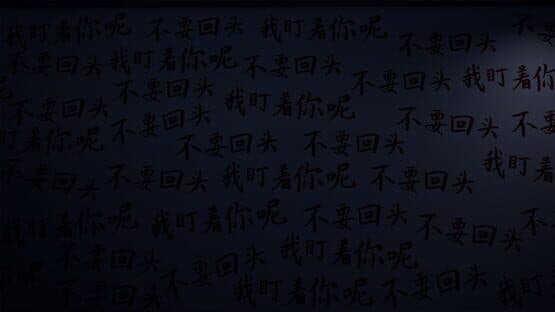 我盯着你呢 不要回头 我盯着你呢 不要回头 不要
不要回头 我盯着你呢 不要回头 不要回头 我盯着你
不要回头 不要回头 我盯着你呢 不要回头 不要
盯着你呢 不要回头 不要回头 不要回头 我盯着
不要回头 不要回头 我盯着你呢 不要回头
我盯着你呢 我盯着你呢 不要回头 不要回头 不要
不要回头 不要回头 我盯着你呢
不要回头 我盯着你呢 不要回头 我盯